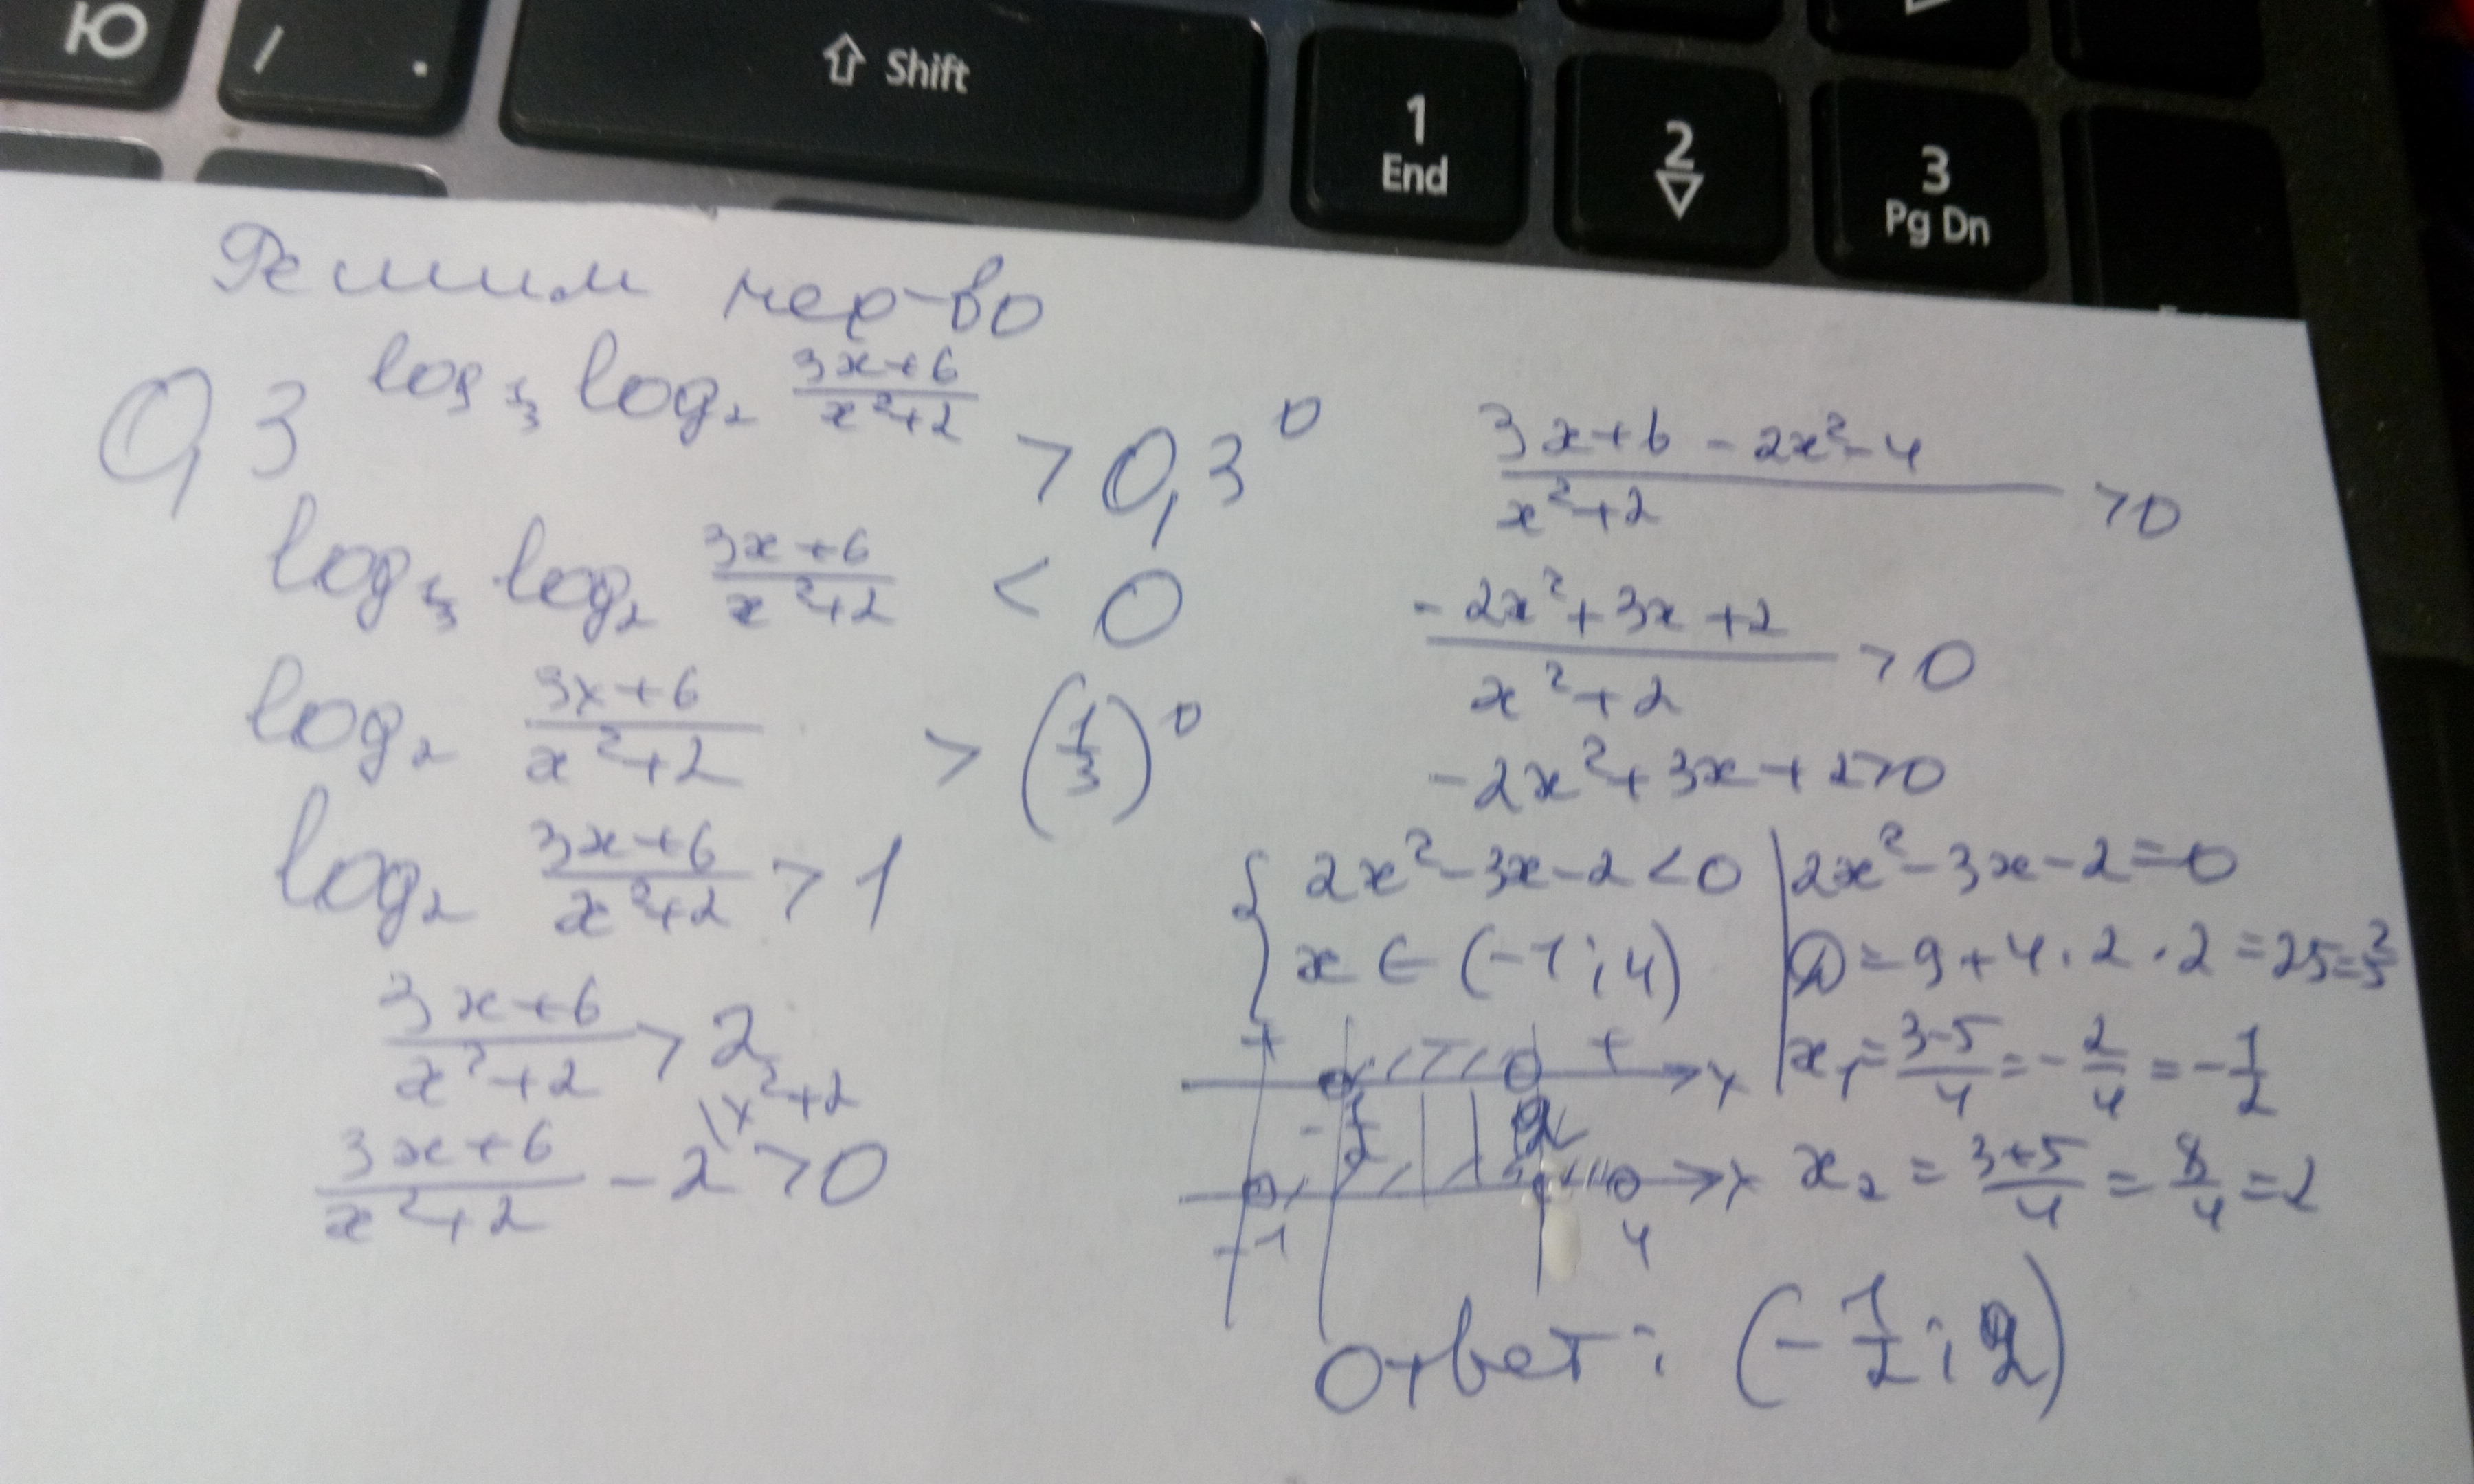 Ю
/ .
⇧ Shift
1
End
2
▽
3
Pg Dn
Решим нер-во
0,3^(log_(1/3) log_2 (3x+6)/(x²+2)) > 0,3^0
log_(1/3) log_2 (3x+6)/(x²+2) < 0
log_2 (3x+6)/(x²+2) > (1/3)^0
log_2 (3x+6)/(x²+2) > 1
(3x+6)/(x²+2) > 2
(3x+6)/(x²+2) - 2 \x²+2 > 0
(3x+6-2x²-4)/(x²+2) > 0
(-2x²+3x+2)/(x²+2) > 0
-2x²+3x+2>0
{ 2x²-3x-2<0
x ∈ (-1; 4)
2x²-3x-2=0
D=9+4·2·2=25=5²
x_1=(3-5)/4=-2/4=-1/2
x_2=(3+5)/4=8/4=2
+ - + x
-1/2 2
x
-1 4
Ответ: (-1/2; 2)